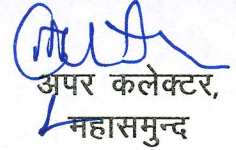 अपर कलेक्टर,
महासमुन्द